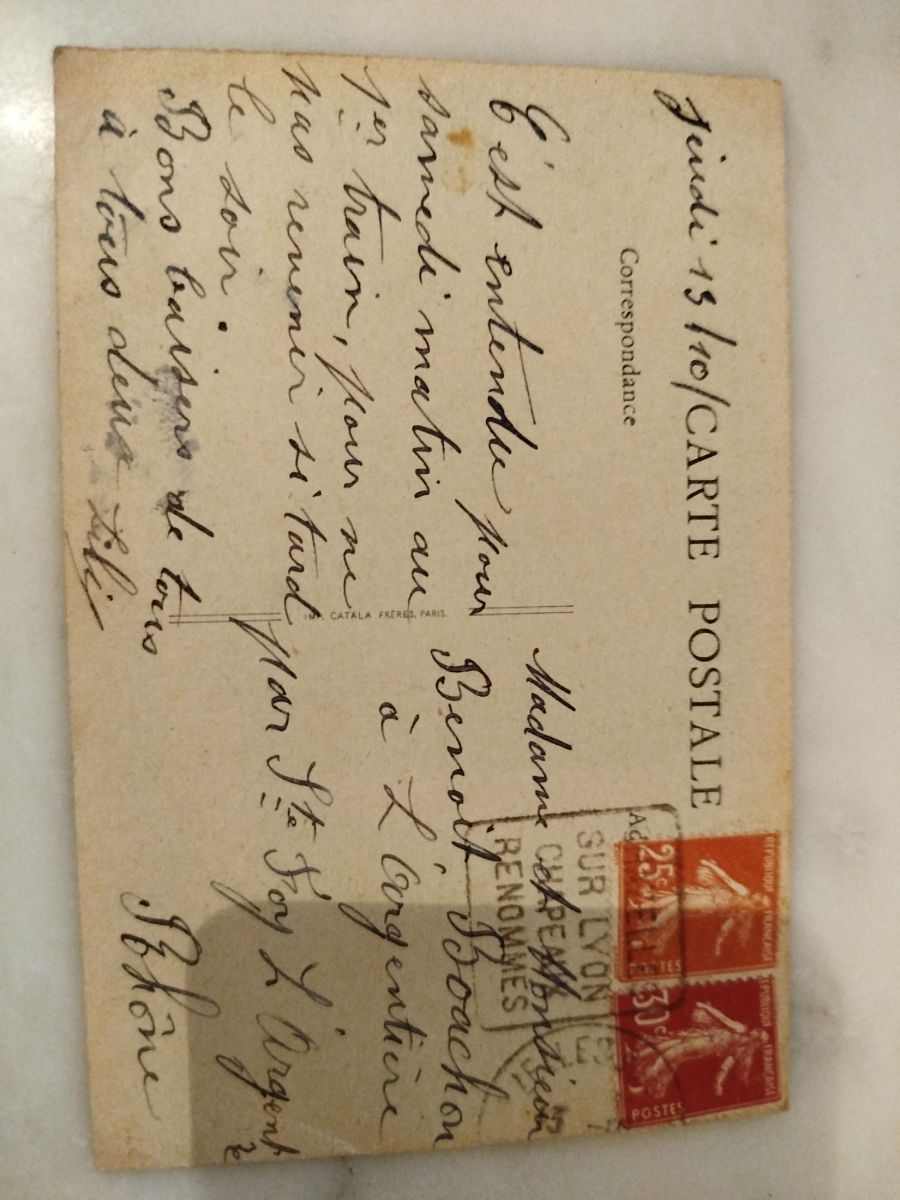 Jeudi 13/10/ CARTE POSTALE
Correspondance
C'est entendu pour
samedi matin au
1er train, pour ne
pas revenir si tard
le soir.
Bons baisers de tous
à tous deux Lili
IMP. CATALA FRÈRES, PARIS
Madame et Monsieur
Benoit Boachon
à L'Argentière
par Ste Foy L'Argent
Rhône
SUR LYON
RENOMMÉS
RÉPUBLIQUE FRANÇAISE
25c
POSTES
RÉPUBLIQUE FRANÇAISE
30c
POSTES